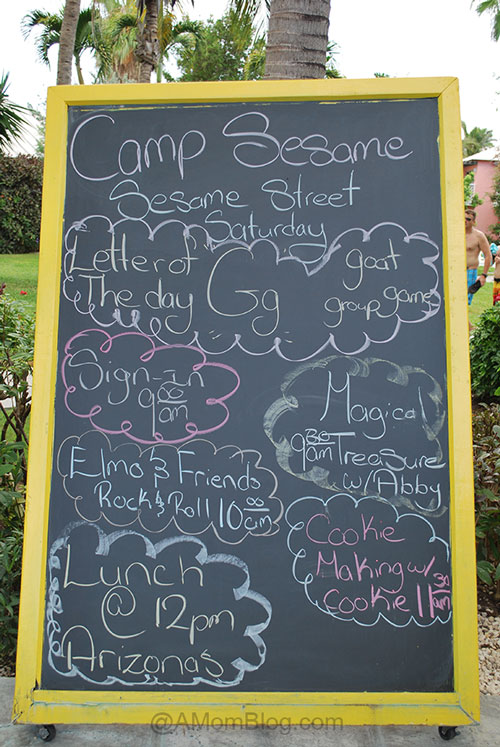 Camp Sesame
Sesame Street
Saturday
Letter of
The day
Gg
goat
group game
Sign-in
9 00 am
Magical
9 30 am Treasure
w/ Abby
Elmo & Friends
Rock & Roll 10 00 am
Cookie
Making w/
Cookie 11 30 am
Lunch
@ 12pm
Arizonas
@AMomBlog.com